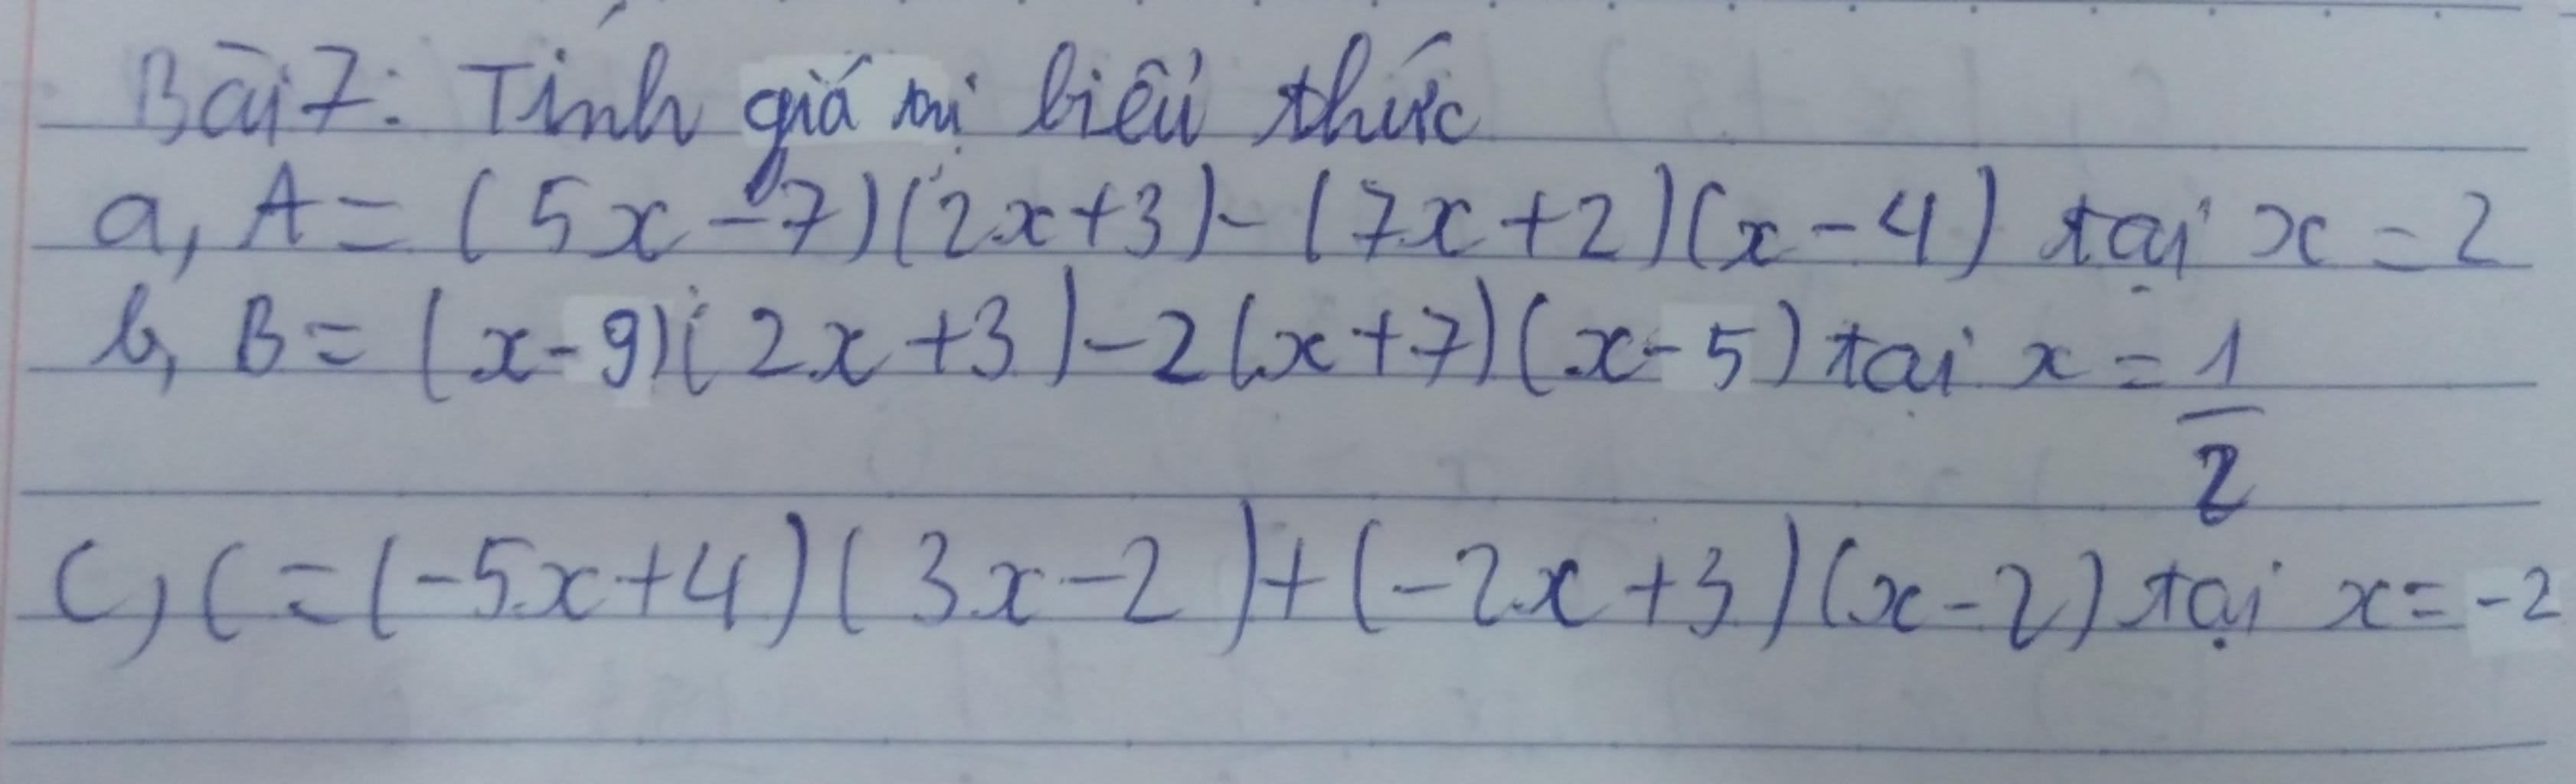 Bài 7: Tính giá trị biểu thức
a, A = (5x - 7)(2x + 3) - (7x + 2)(x - 4) tại x = 2
b, B = (x - 9)(2x + 3) - 2(x + 7)(x - 5) tại x = 1/2
C, C = (-5x + 4)(3x - 2) + (-2x + 3)(x - 2) tại x = -2